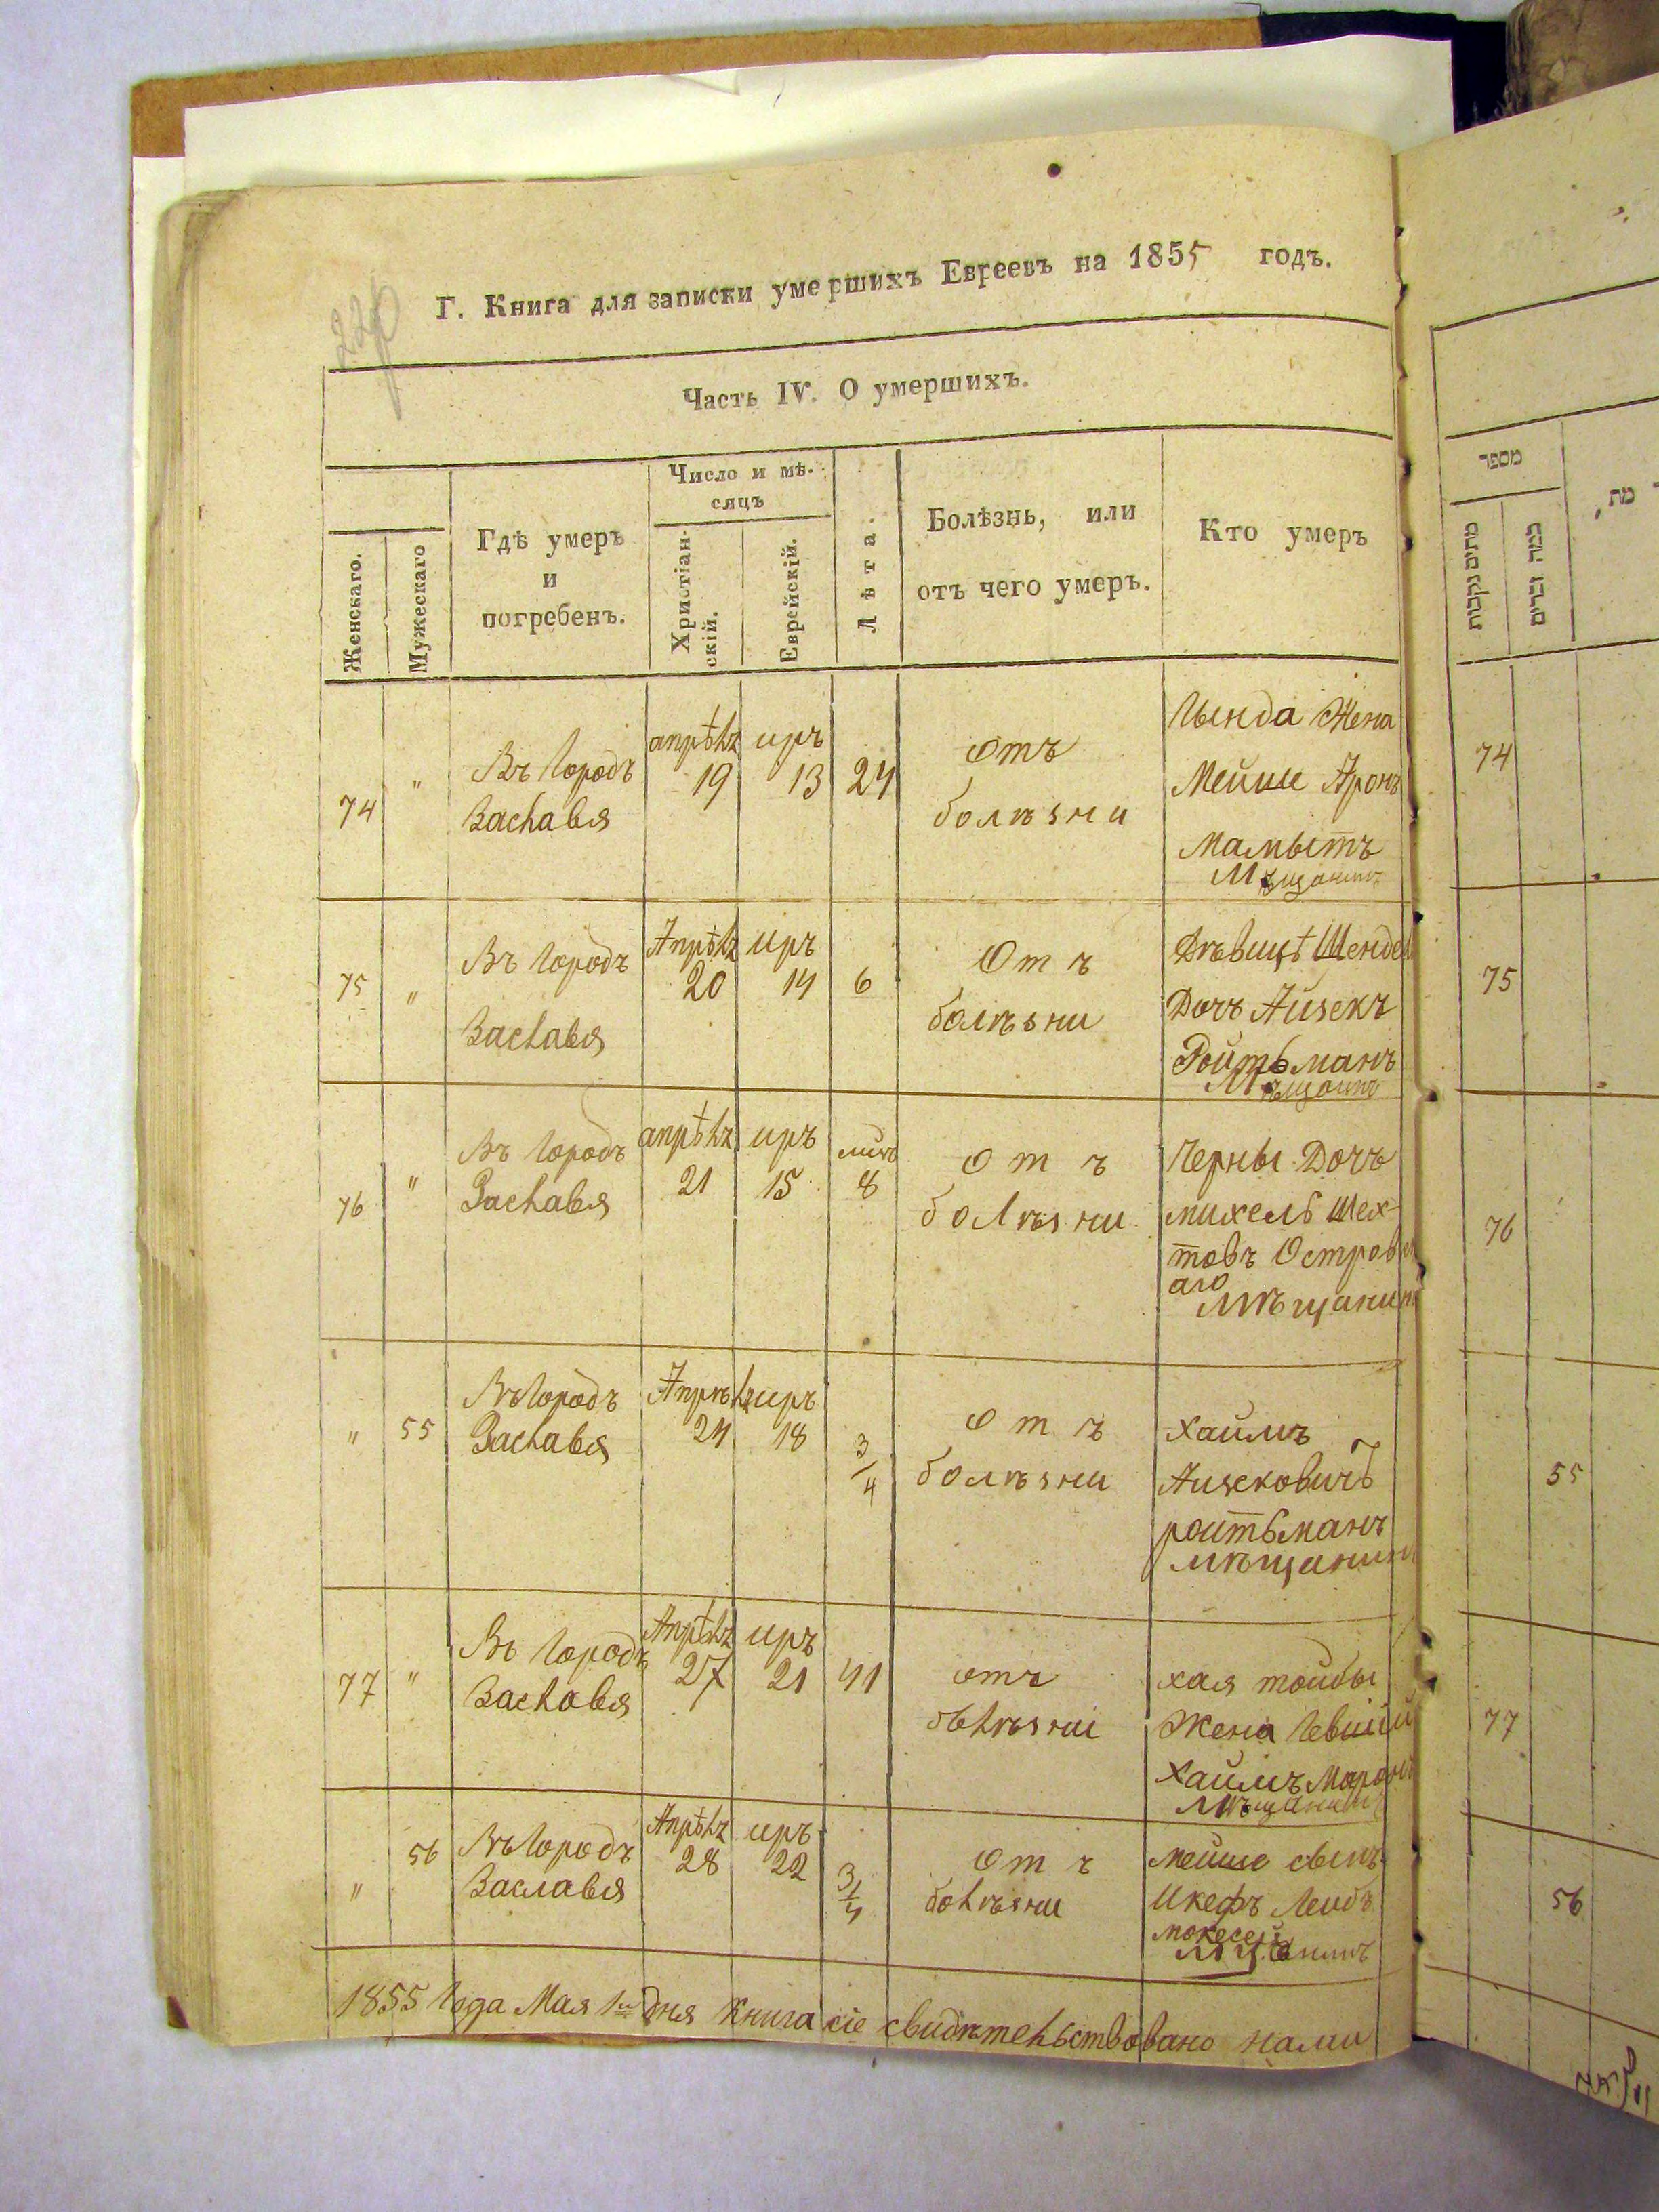 220
Г. Книга для записки умершихъ Евреевъ на 1855 годъ.
Часть IV. О умершихъ.
Женскаго.
Мужескаго
Гдѣ умеръ
и
погребенъ.
Число и мѣ-
сяцъ
Христіан-
скій.
Еврейскій.
Лѣта.
Болѣзнь, или
отъ чего умеръ.
Кто умеръ
74 " Въ Городъ Заславя апрѣль 19 иръ 13 24 отъ болѣзни
Гында Жена
Мейше Аронъ
Мамытъ
Мѣщанинъ
75 " Въ Городъ Заславя Апрѣль 20 Иръ 14 6 Отъ болѣзни
Дѣвицѣ Шендел
Дочъ Айзекъ
Ройтьманъ
Мѣщанинъ
76 " Въ Городъ Заславя апрѣль 21 иръ 15 8 отъ болѣзни
Черны Дочъ
михель Шех-
товъ
аго
мѣщанинъ
" 55 Въ Городъ Заславя Апрѣль 24 иръ 18 3/4 отъ болѣзни
Хаимъ
Аизековичъ
роитьманъ
мѣщанинъ
77 " Въ Городъ Заславя Апрѣль 27 иръ 21 41 отъ болѣзни
хая тойбы
Жена
Хаимъ
мѣщанинъ
" 56 Въ Городъ Заславя Апрѣль 28 иръ 22 3/4 отъ болѣзни
мейше сынъ
Икефъ Леибъ
1855 Года Мая 1го дня Книга сіе свидѣтельствовано нами
מספר
מתים נקבות
כמה זכרים
מת,
74
75
76
55
77
56